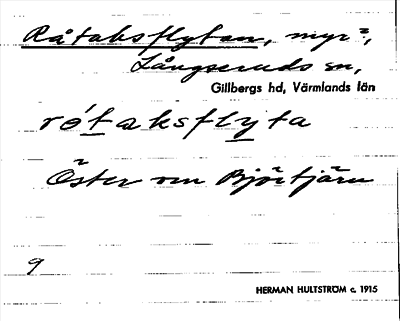 Råtaksflytan, myr?,
Långseruds sn,
Gillbergs hd, Värmlands län
rótaksflyta
Öster om Björtjärn
9
HERMAN HULTSTRÖM c. 1915